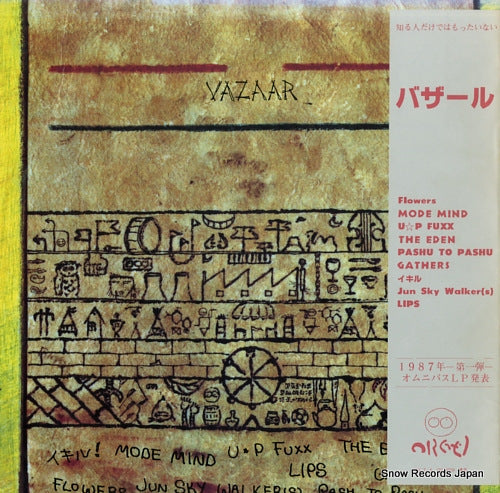 VAZAAR
知る人だけではもったいない
バザール
Flowers
MODE MIND
U☆P FUXX
THE EDEN
PASHU TO PASHU
GATHERS
イキル
Jun Sky Walker(s)
LIPS
1987年—第一弾—
オムニバスLP発表
イキル! MODE MIND U★P FUXX THE E
LIPS
FLOWERS JUN SKY WALKER(S) PASHU TO PASHU
Snow Records Japan